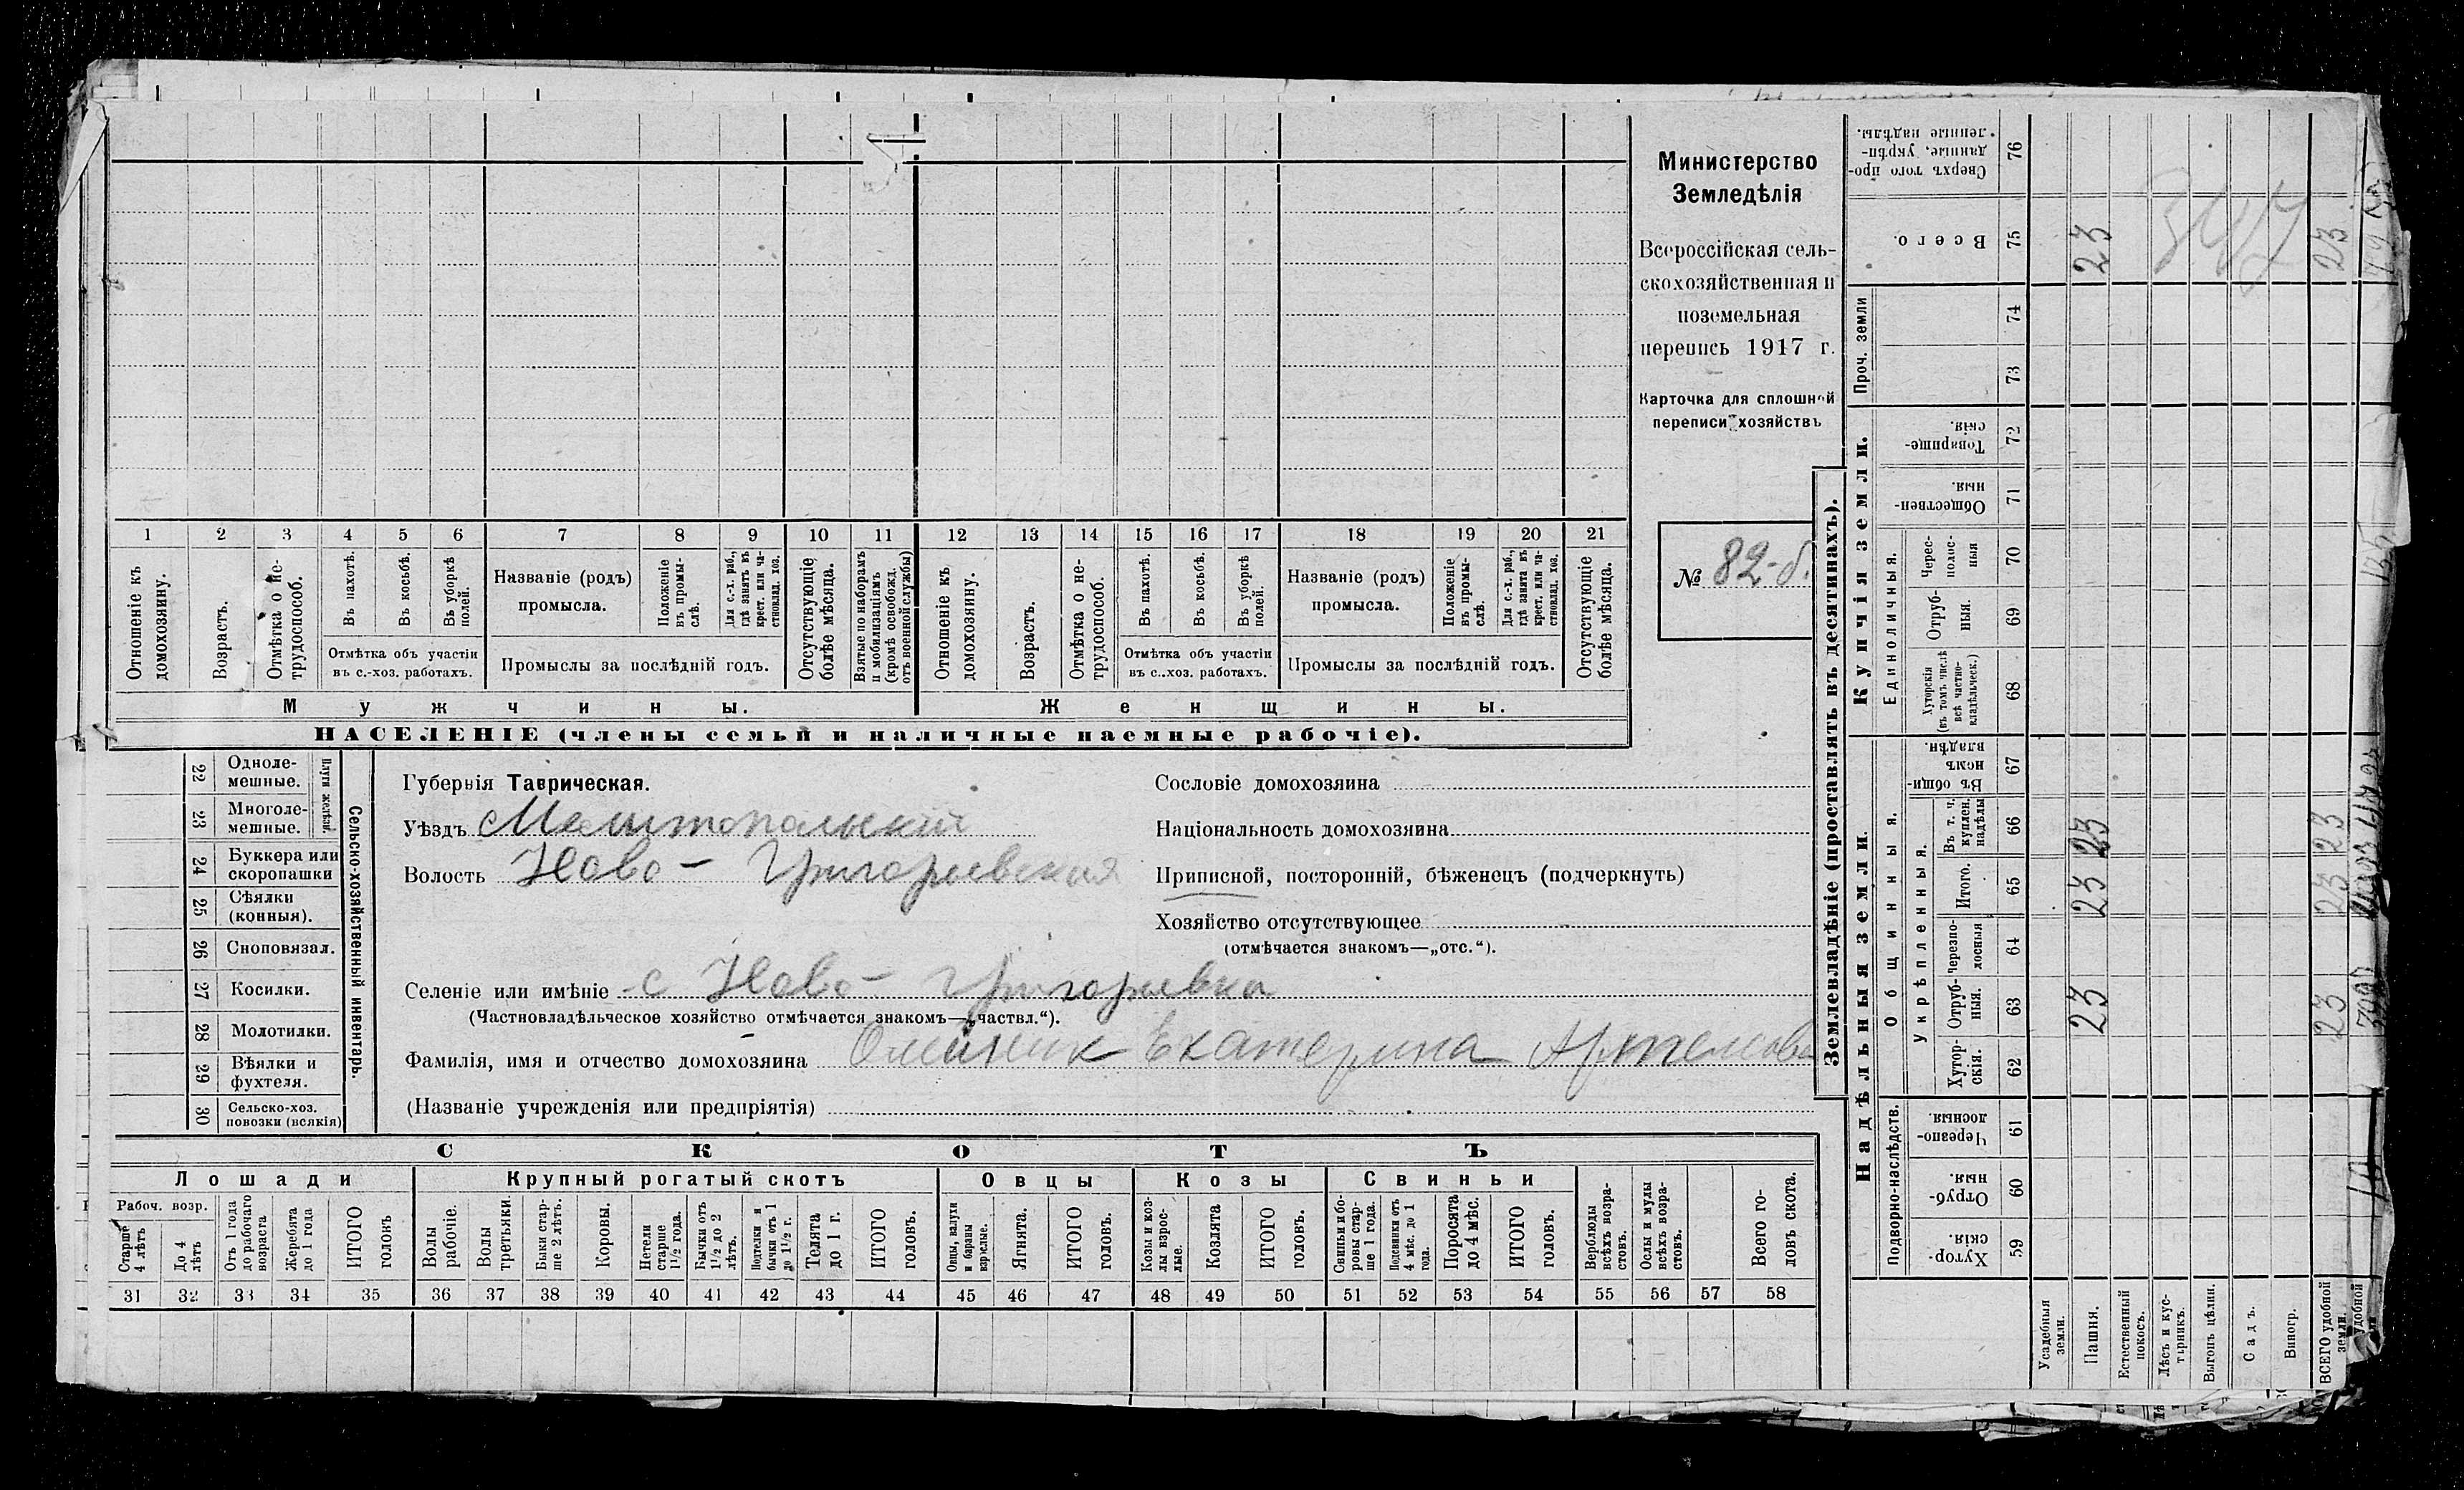 Министерство
Земледѣлія
Всероссійская сель-
скохозяйственная и
поземельная
перепись 1917 г.
Карточка для сплошной
переписи хозяйствъ
№ 82-б.
1 2 3 4 5 6 7 8 9 10 11 12 13 14 15 16 17 18 19 20 21
Отношеніе къ домохозяину.
Возрастъ.
Отмѣтка о не-трудоспособ.
Въ пахотѣ.
Въ косьбѣ.
Въ уборкѣ полей.
Названіе (родъ) промысла.
Положеніе въ промы-слѣ.
Для с.-х. раб., гдѣ занятъ въ крест. или ча-стновлад. хоз.
Отсутствующіе болѣе мѣсяца.
Взятые по наборамъ и мобилизаціямъ (кромѣ освобожд. отъ военной службы)
Отмѣтка объ участіи въ с.-хоз. работахъ.
Промыслы за послѣдній годъ.
Отношеніе къ домохозяину.
Возрастъ.
Отмѣтка о не-трудоспособ.
Въ пахотѣ.
Въ косьбѣ.
Въ уборкѣ полей.
Названіе (родъ) промысла.
Положеніе въ промы-слѣ.
Для с.-х. раб., гдѣ занята въ крест. или ча-стновлад. хоз.
Отсутствующіе болѣе мѣсяца.
Отмѣтка объ участіи въ с.-хоз. работахъ.
Промыслы за послѣдній годъ.
Мужчины.
Женщины.
НАСЕЛЕНІЕ (члены семьи и наличные наемные рабочіе).
22 Одноле-мешные.
23 Многоле-мешные.
Плуги желѣзн.
24 Буккера или скоропашки
25 Сѣялки (конныя).
26 Сноповязал.
27 Косилки.
28 Молотилки.
29 Вѣялки и фухтеля.
30 Сельско-хоз. повозки (всякія)
Сельско-хозяйственный инвентарь.
Губернія Таврическая.
Уѣздъ Мелитопольский
Волость Ново-Григорьевская
Сословіе домохозяина
Національность домохозяина
Приписной, посторонній, бѣженецъ (подчеркнуть)
Хозяйство отсутствующее
(отмѣчается знакомъ—„отс.“).
Селеніе или имѣніе с Ново-Григорьевка
(Частновладѣльческое хозяйство отмѣчается знакомъ—„частвл.“).
Фамилія, имя и отчество домохозяина Олейник Екатерина Артемова
(Названіе учрежденія или предпріятія)
СКОТЪ
Лошади
Крупный рогатый скотъ
Овцы
Козы
Свиньи
Рабоч. возр.
Старше 4 лѣтъ
До 4 лѣтъ
Отъ 1 года до рабочаго возраста
Жеребята до 1 года
ИТОГО головъ
Волы рабочіе.
Волы третьяки.
Быки стар-ше 2 лѣтъ.
Коровы.
Нетели старше 1½ года.
Бычки отъ 1½ до 2 лѣтъ.
Подтелки и бычки отъ 1 до 1½ г.
Телята до 1 г.
ИТОГО головъ.
Овцы, валухи и бараны взрослые.
Ягнята.
ИТОГО головъ.
Козы и коз-лы взрос-лые.
Козлята
ИТОГО головъ.
Свиньи и бо-ровы стар-ше 1 года.
Подсвинки отъ 4 мѣс. до 1 года.
Поросята до 4 мѣс.
ИТОГО головъ.
Верблюды всѣхъ возра-стовъ.
Ослы и мулы всѣхъ возра-стовъ.
Всего го-ловъ скота.
31 32 33 34 35 36 37 38 39 40 41 42 43 44 45 46 47 48 49 50 51 52 53 54 55 56 57 58
Землевладѣніе (проставлять въ десятинахъ).
Надѣльныя земли.
Купчія земли.
Проч. земли
Подворно-наслѣдств.
Общинныя.
Укрѣпленныя.
Единоличныя.
Хутор-скія. 59
Отруб-ныя. 60
Черезпо-лосныя. 61
Хутор-скія. 62
Отруб-ныя. 63
Черезпо-лосныя 64
Итого. 65
Въ т. ч. куплен. надѣлы 66
Въ общи-номъ владѣн. 67
Хуторскія (въ томъ числѣ всѣ частно-владѣльческ.) 68
Отруб-ныя. 69
Черес-полос-ныя 70
Обществен-ныя. 71
Товарище-скія. 72
73
74
Всего. 75
Сверхъ того про-данные, укрѣп-ленные надѣлы. 76
Усадебныя земли.
Пашня. 23 23 23 23
Естественный покосъ.
Лѣсъ и кус-тарникъ.
Выгонъ цѣлин.
Садъ.
Виногр.
ВСЕГО удобной земли. 23 23 23 23
удобной